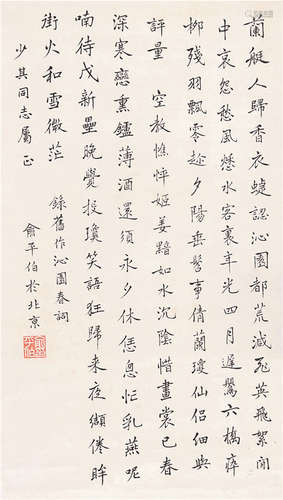 蘭艇人歸香衣蜨認沁園都荒減飛英飛絮間
中哀怨愁風愁水客裏年光四月遲驚六橋瘁
柳殘羽飄零趁夕陽垂髫事倩蘭瓊仙侶細與
評量 空教憔悴姬姜黯如水沉陰惜畫裳已春
深寒戀熏鑪薄酒還須永夕休恁息忙乳燕呢
喃待戊新壘晚覺投瓊笑語狂歸來夜纈倦眸
街火和雪微茫
少其同志屬正
錄舊作沁園春詞
俞平伯於北京